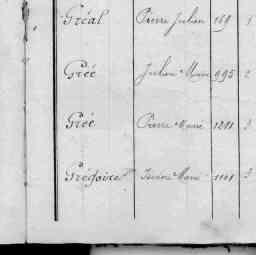 Gréal Pierre Julien 169
Gréé Julien Marie 995 2
Gréé Pierre Marie 1211 3
Grégoire Marie 3